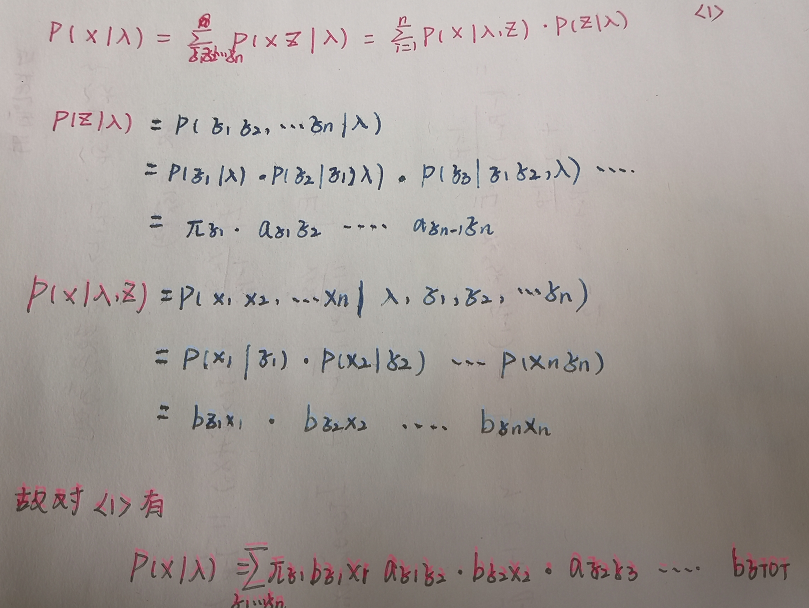 P(X|λ) = ∑_{z₁z₂…zₙ} P(XZ|λ) = ∑_{i=1}^{n} P(X|λ,Z)·P(Z|λ) <1>
P(Z|λ) = P(z₁z₂,…zₙ|λ)
= P(z₁|λ)·P(z₂|z₁,λ)·P(z₃|z₁z₂,λ)····
= πz₁· a_{z₁z₂} ···· a_{zₙ₋₁zₙ}
P(X|λ,Z) = P(x₁x₂,…xₙ| λ, z₁,z₂,…zₙ)
= P(x₁|z₁)·P(x₂|z₂) ··· P(xₙzₙ)
= b_{z₁x₁} · b_{z₂x₂} ···· b_{zₙxₙ}
故对<1>有
P(X|λ) = ∑_{z₁…zₙ} πz₁b_{z₁x₁} a_{z₁z₂}·b_{z₂x₂}·a_{z₂z₃} ···· b_{zTOT}